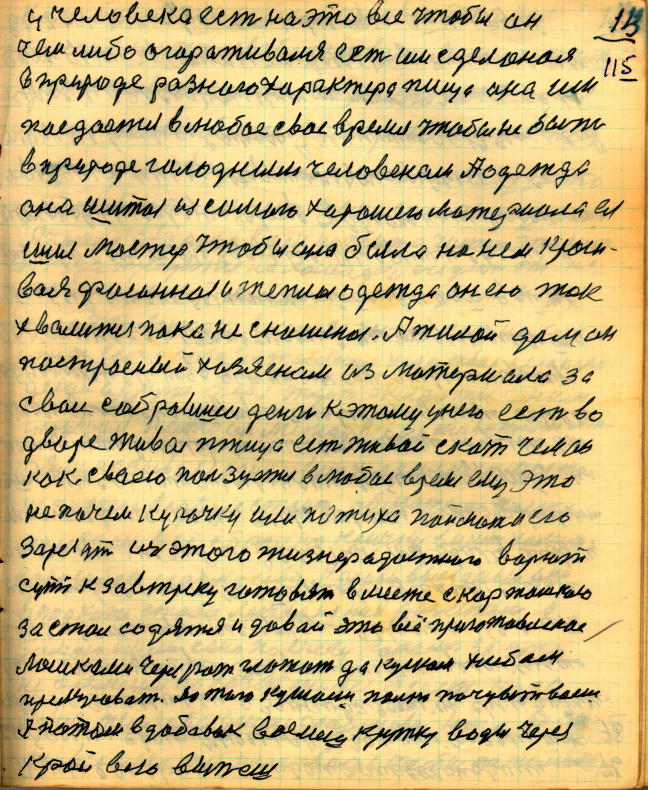 у человека ест на это все чтобы он
чем либо огораживался ест им сделоная
в природе разного характера пища она им
поедается в любое свое время чтобы не быть
в природе голодным человеком А одежда
она шитоя из самого хорошего материала ея
шил мостер чтобы она была на нем краси-
воя фасонноя и теплоя одежда он ею так
хвалится пока не сносится. А жилой дом он
построеный хозяеном из материала за
свои собравшеи денги к этому у него ест во
дворе живоя птица ест живой скот чем он
как своею ползуется в любое время ему это
не почем курочку или петуха поймою его
зарежут из этого жизнерадостного ворют
суп к завтрику готовят вместе с картошкою
за стол содятся и довай это всё приготовленое
лошками через рот глотот да куском хлебом
прикусоват. До того кушали полно почувствовали
А потом в добавок возмеш кружку воды через
край всю выпеш
113
115